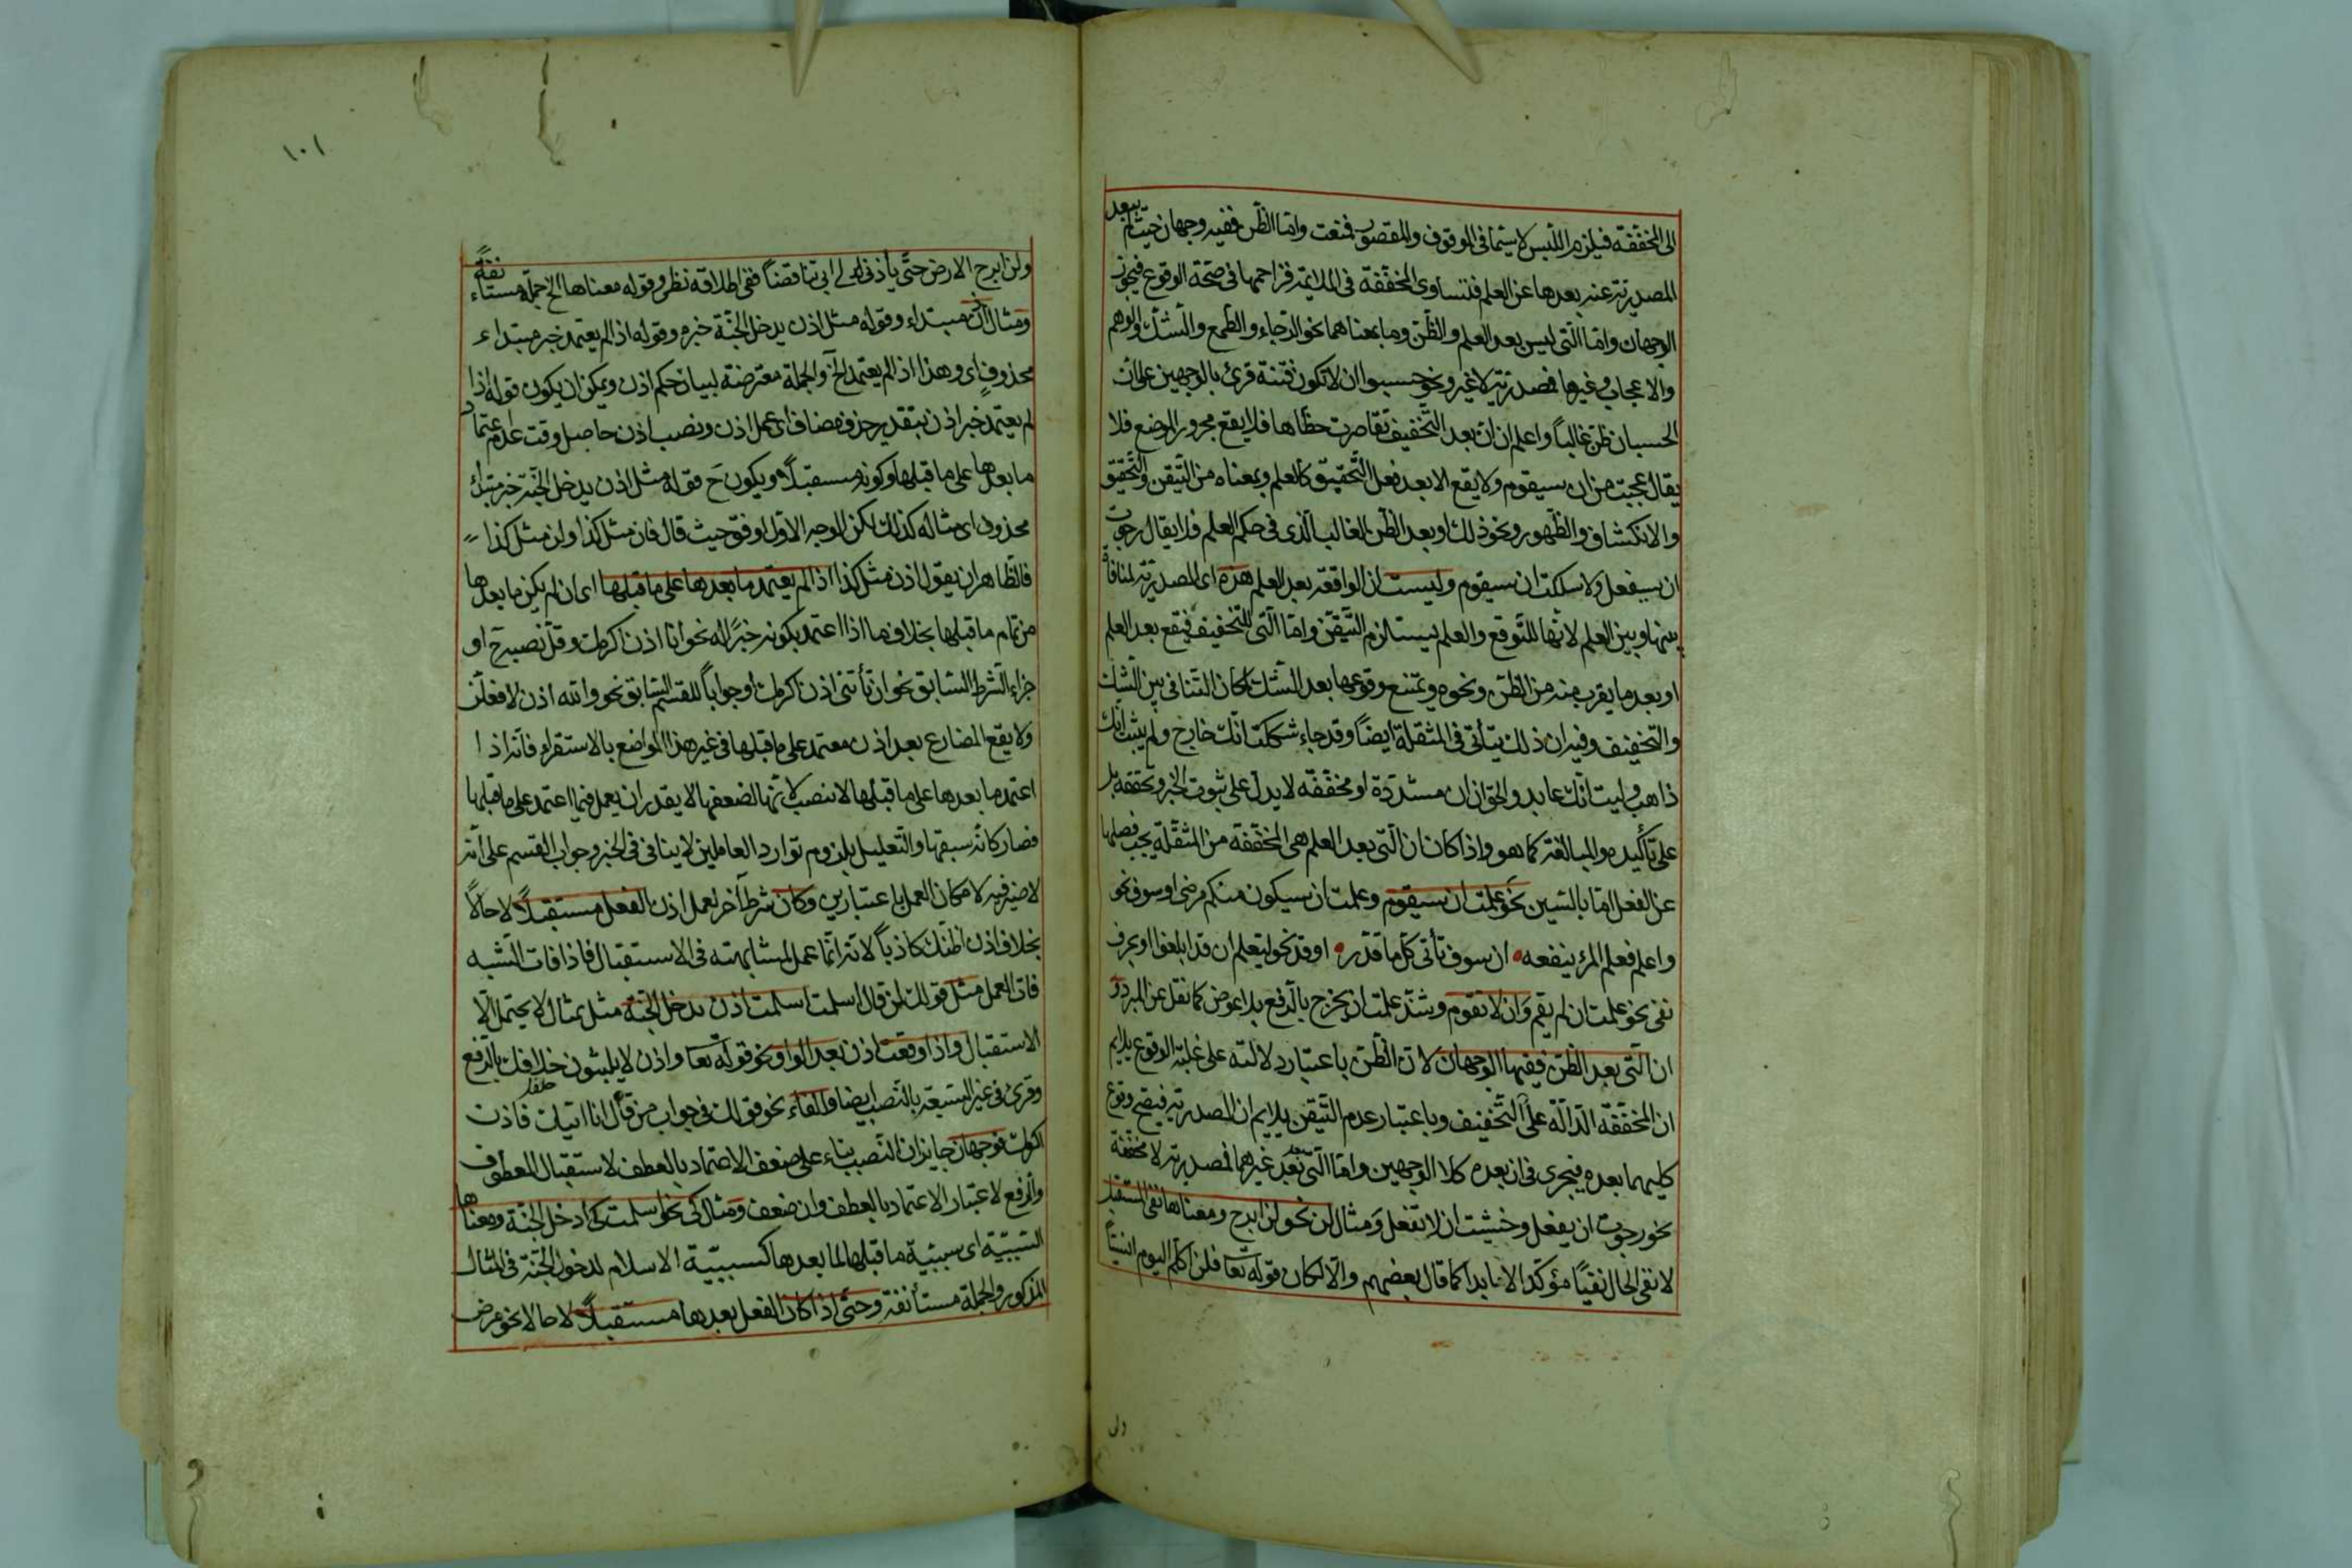 الى المخففة فيلزم اللبس لا سيما فى الموقوف والمقصور فمنعت واما الظن ففيه وجهان حيث لم يبعد
المصدرية عنه بعدها عن العلم فتساوى المخففة فى الملايمة فزاحمها فى صحة الوقوع فيجوز
الوجهان واما التى ليس بعد العلم والظن وما بمعناهما نحو الرجاء والطمع والشك والوهم
والاعجاب وغيرها فمصدرية لا غير ونحو وحسبوا ان لا تكون فتنة قرئ بالوجهين على ان
الحسبان ظن غالباً واعلم ان ان بعد التخفيف تقاصرت حظاها فلا يقع مجرور الموضع فلا
يقال عجبت من ان سيقوم ولا يقع الا بعد فعل التحقيق كالعلم وبمعناه من التيقن والتحقيق
والانكشاف والظهور ونحو ذلك او بعد الظن الغالب الذى فى حكم العلم فلا يقال رجوت
ان سيفعل ولا سلكت ان سيقوم وليست ان الواقعة بعد العلم هذه اى المصدرية لمنافاة
بينها وبين العلم لانها للتوقع والعلم يستلزم التيقن واما التى للتخفيف فيقع بعد العلم
او بعد ما يقرب منه من الظن ونحوه ويمتنع وقوعها بعد الشك لمكان التنافى بين الشك
والتخفيف وفيه ان ذلك يتأتى فى المثقلة ايضاً وقد جاء شككت انك خارج ولم يثبت انك
ذاهب وليت انك عايد والحق ان ان مشددة او مخففة لا يدل على ثبوت الخبر وتحققه بل
على تأكيده والمبالغة كما هو واذا كان ان التى بعد العلم هى المخففة من المثقلة يجب فصلها
عن الفعل اما بالسين نحو علمت ان سيقوم وعلمت ان سيكون منكم مرضى او سوف نحو
واعلم فعلم المرء ينفعه ان سوف تأتى كل ما قدر او قد نحو ليعلم ان قد ابلغوا او بحرف
نفى نحو علمت ان لم يقم وان لا تقوم وشذ علمت ان يخرج بالرفع بلا عوض كما نقل عن المبرد و
ان التى بعد الظن ففيها الوجهان لان الظن باعتبار دلالته على غلبة الوقوع يلايم
ان المخففة الدالة على التخفيف وباعتبار عدم التيقن يلايم ان المصدرية فيصح وقوع
كليهما بعده فيجرى فى ان بعده كلا الوجهين واما التى بعد غيرهما فمصدرية لا مخففة
نحو رجوت ان يفعل وخشيت ان لا تفعل ومثال لن نحو لن ابرح ومعناها نفى المستقبل
لا نفى الحال نفيًا مؤكدا لا تابيدا كما قال بعضهم والا لكان قوله تعا فلن اكلم اليوم انسيًا
ولن
١٠١
ولن ابرح الارض حتى يأذن لى ابى تناقضاً ففى اطلاقه نظر وقوله معناها الخ جملة مستأنفة
ومثال اذن مبتداء وقوله مثل اذن يدخل الجنة خبره وقوله اذا لم يعتمد خبر مبتداء
محذوف اى وهذا اذا لم يعتمد الخ والجملة معترضة لبيان حكم اذن ويمكن ان يكون قوله اذا
لم يعتمد خبر اذن بتقدير حذف مضاف اى عمل اذن ونصب اذن حاصل وقت عدم اعتماد
ما بعدها على ما قبلها وكونه مستقبلاً ويكون ح قوله مثل اذن يدخل الجنة خبر مبتداء
محذوف اى مثاله كذلك لكن الوجه الاول اوفق حيث قال فان مثل كذا ولن مثل كذا
فالظاهر ان يقول اذن مثل كذا اذا لم يعتمد ما بعدها على ما قبلها اى ان لم يكن ما بعدها
من تمام ما قبلها بخلاف ما اذا اعتمد بكونه خبرًا له نحو انا اذن اكرمك وقل نصبه ح او
جزاء الشرط السابق نحو ان تأتنى اذن اكرمك او جواباً للقسم السابق نحو والله اذن لافعلن
ولا يقع المضارع بعد اذن معتمد على ما قبلها فى غير هذا المواضع بالاستقراء فانه اذا
اعتمد ما بعدها على ما قبلها لا ينصب لانها لضعفها لا يقدر ان يعمل فيما اعتمد على ما قبلها
فصار كانه سبقها والتعليل بلزوم توارد العاملين لا ينافى فى الخبر وجواب القسم على انه
لا ضير فيه لامكان العمل باعتبارين وكان شرط آخر لعمل اذن الفعل مستقبلاً لا حالاً
بخلاف اذن اظنك كاذباً لانه انما عمل لمشابهته فى الاستقبال فاذا فات الشبه
فات العمل مثل قولك لمن قال اسلمت اسلمت اذن يدخل الجنة مثل بمثال لا يحتمل الا
الاستقبال واذا وقعت اذن بعد الواو نحو قوله تعا واذن لا يلبثون خلافك بالرفع
وقرئ فى غير السبعة بالنصب ايضا والفاء نحو قولك فى جواب من قال انا اتيك فاذن
اكرمك فوجهان جايزان النصب بناء على ضعف الاعتماد بالعطف لاستقبال المعطوف
والرفع لاعتبار الاعتماد بالعطف وان ضعف ومثال كى نحو اسلمت كى ادخل الجنة ومعناها
السببية اى سببية ما قبلها لما بعدها كسببية الاسلام لدخول الجنة فى المثال
المذكور والجملة مستأنفة وحتى اذا كان الفعل بعدها مستقبلاً لا حالا نحو مرض